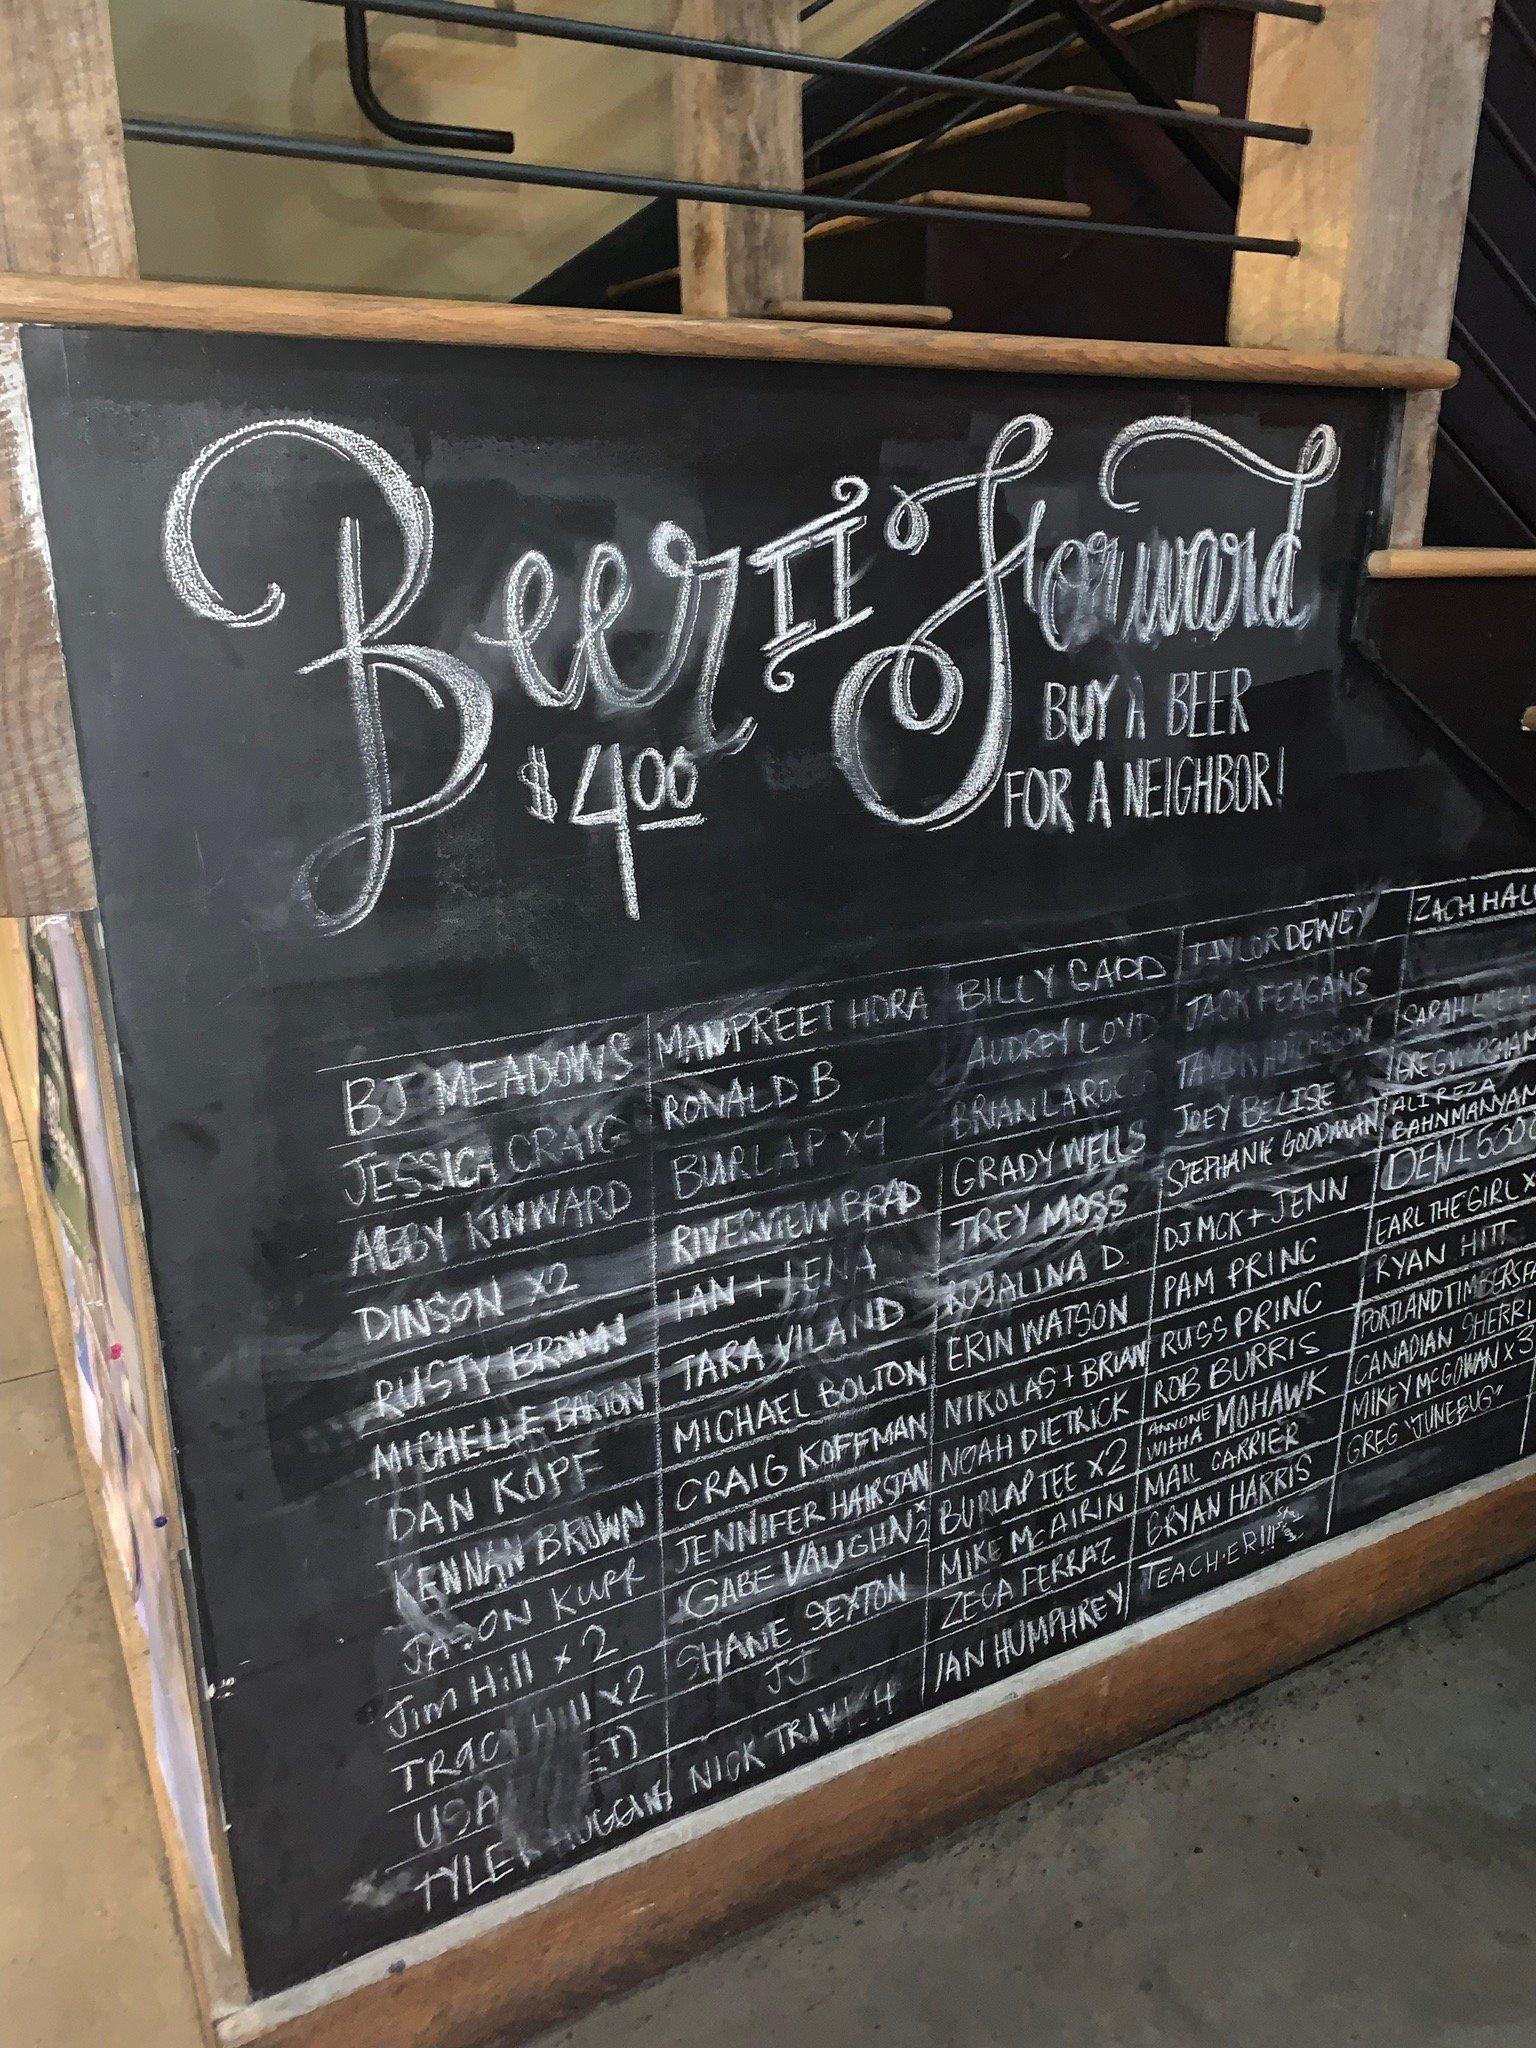 Beer IT Forward
$4.00
BUY A BEER
FOR A NEIGHBOR!
BJ MEADOWS
JESSICA CRAIG
ABBY KINWARD
DINSON X2
RUSTY BROWN
MICHELLE BARTON
DAN KOPF
KENNAN BROWN
JASON KURR
Jim Hill x 2
TRACY Hill x2
USA
TYLER
MANPREET HORA
RONALD B
BURLAP X4
RIVERVIEW BRAD
IAN + LENA
TARA VILAND
MICHAEL BOLTON
CRAIG KOFFMAN
JENNIFER HAIRSTAN
GABE VAUGHN x2
SHANE SEXTON
JJ
NICK
BILLY GADD
AUDREY LOYD
BRIAN
GRADY WELLS
TREY MOSS
ROSALINA D.
ERIN WATSON
NIKOLAS + BRIAN
NOAH DIETRICK
BURLAP TEE X2
MIKE McAIRIN
ZECA FERRAZ
IAN HUMPHREY
TAYLOR DEWEY
JACK FEAGANS
TAYLOR HUTCHESON
JOEY BELISE
STEPHANIE GOODMAN
DJ MCK + JENN
PAM PRINC
RUSS PRINC
ROB BURRIS
ANYONE WITH A MOHAWK
MAIL CARRIER
BRYAN HARRIS
TEACHER!!!
ZACH HALL
SARAH
GREG WORSHAM
ALI REZA
BAHNMANYAN
DENI 5000
EARL THE GIRL X
RYAN HITT
PORTLAND TIMBERS FA
CANADIAN SHERRI
MIKEY McGOWAN x3
GREG "JUNEBUG"